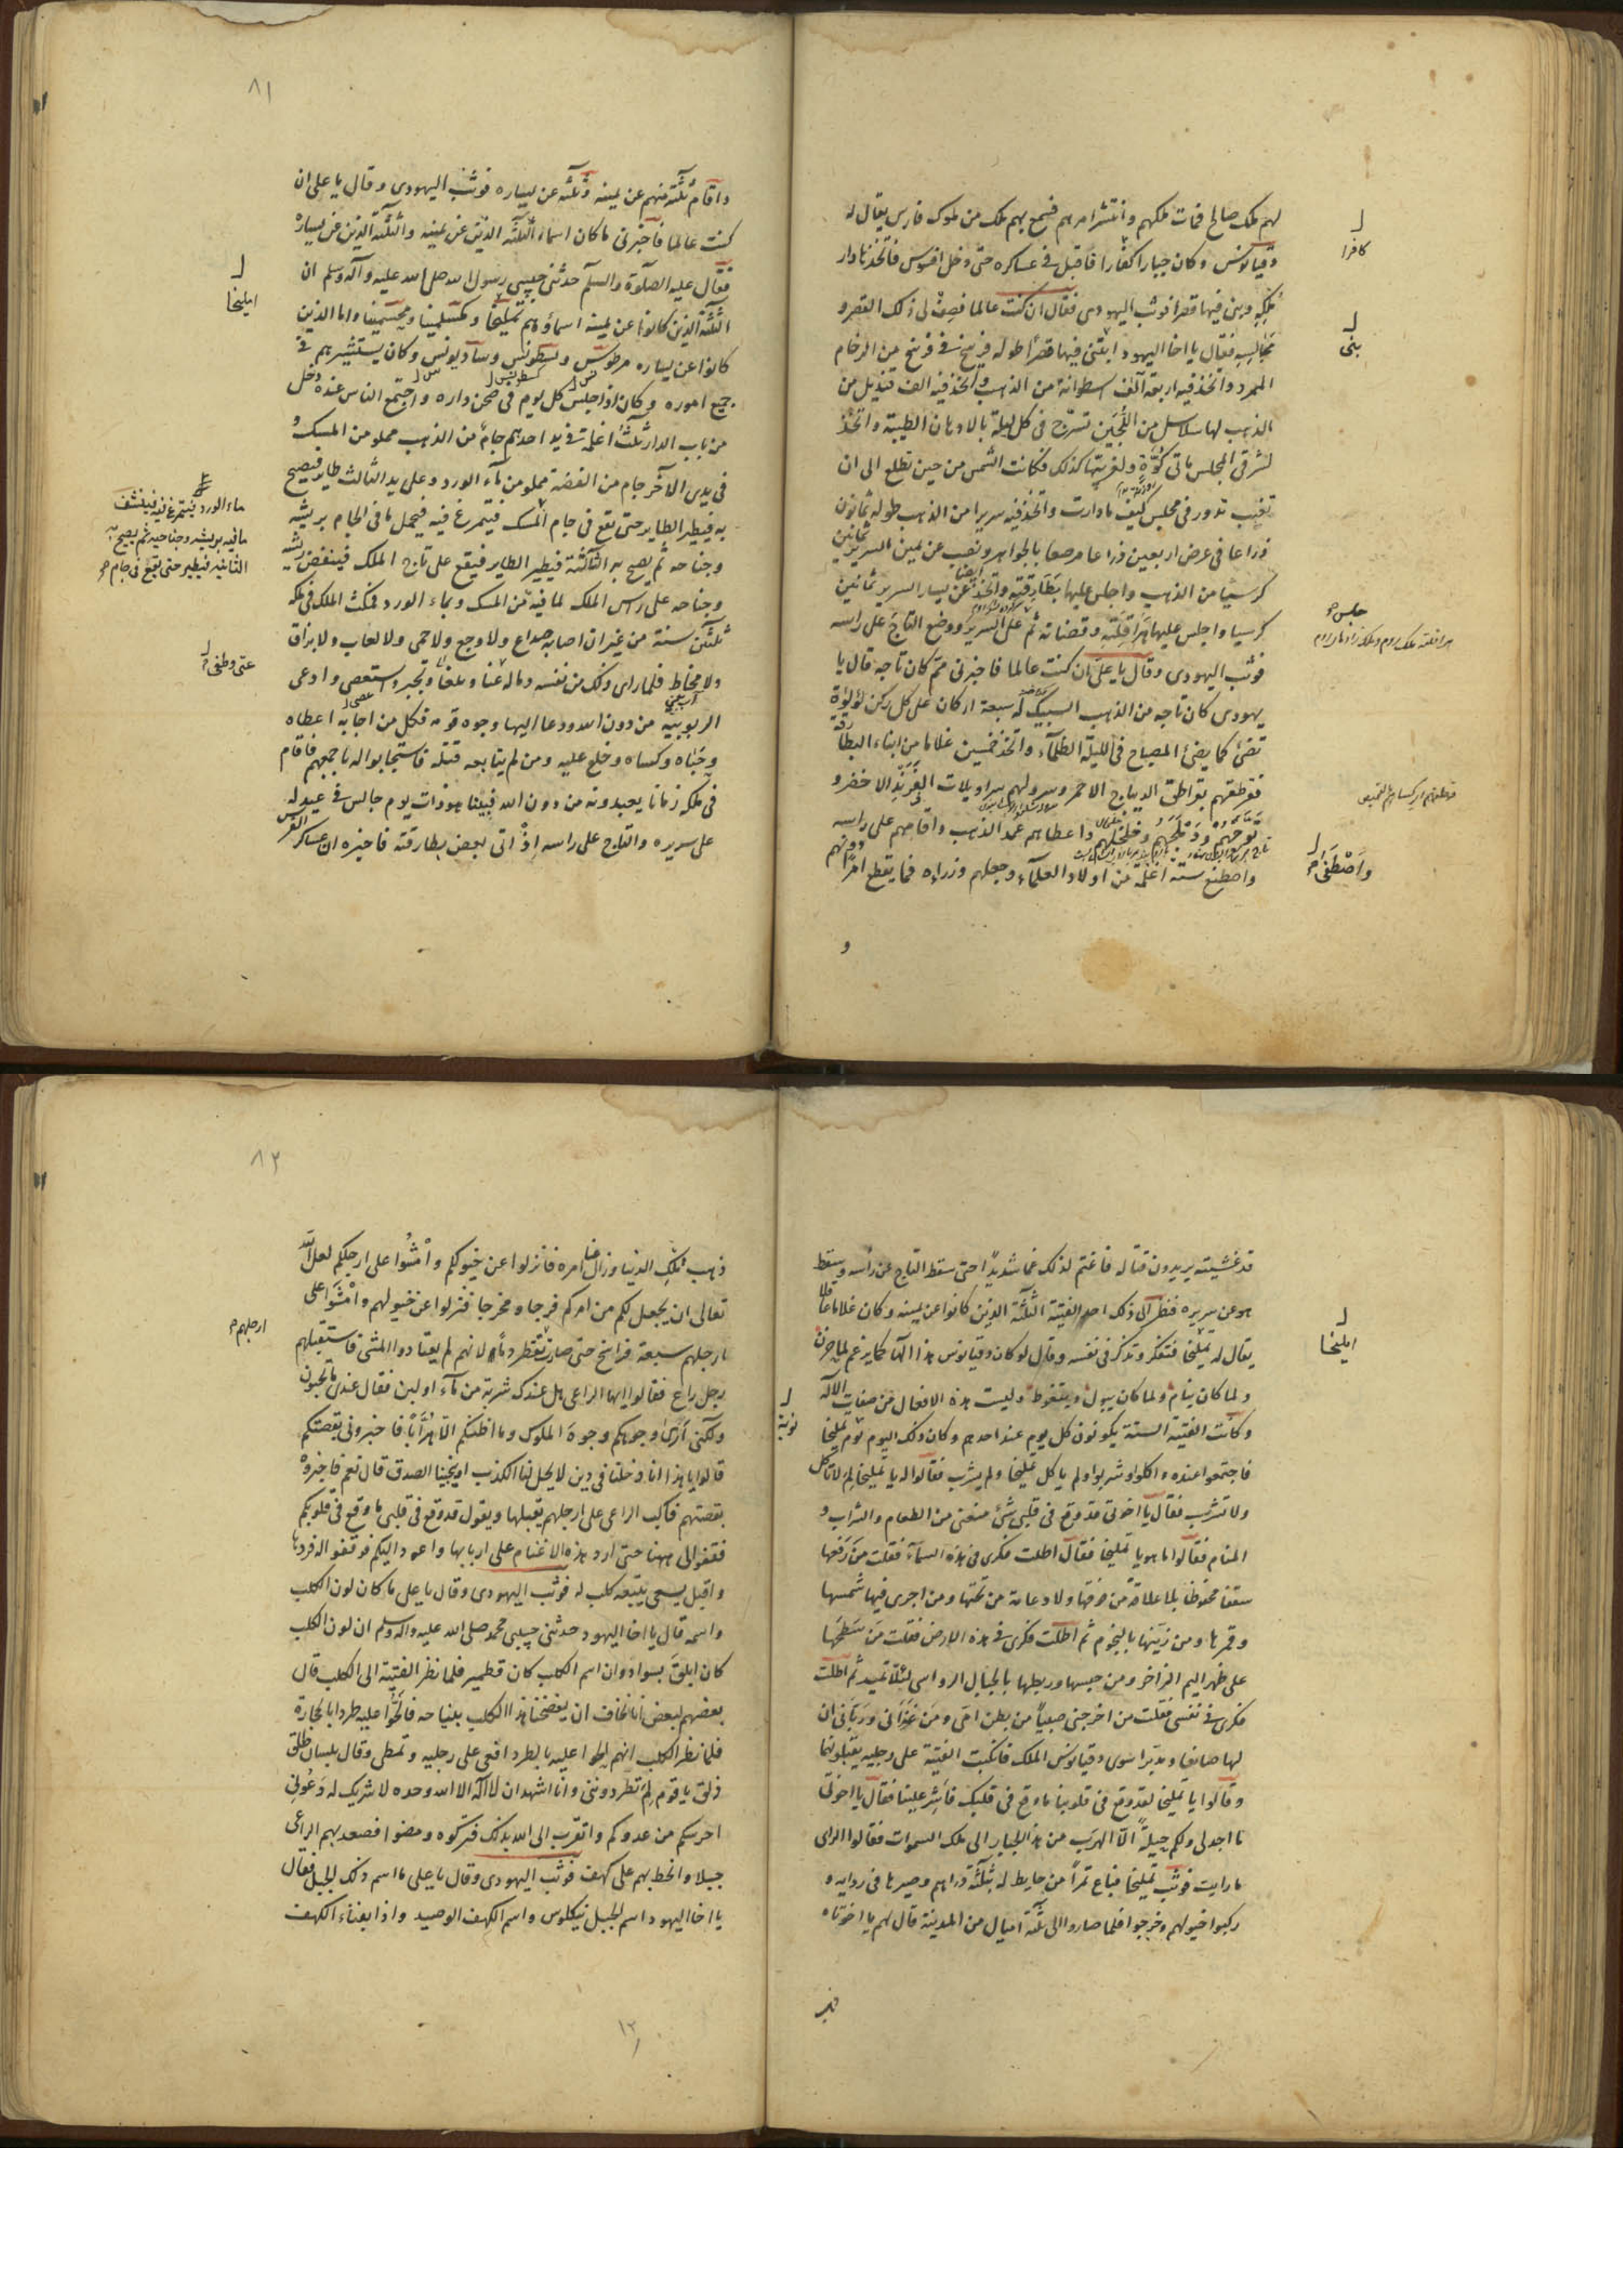 لهم ملك صالح فمات ملكهم وانتشر امرهم فسمع بهم ملك من ملوك فارس يقال له
دقيانوس وكان جبارا كفارا فاقبل في عساكره حتى دخل افسوس فاتخذها دار
ملكه وبنى فيها قصرا فوثب اليهودى فقال ان كنت عالما فصف لى ذلك القصر و
مجالسه فقال يا اخا اليهود ابتنى فيها قصرا طوله فرسخ في فرسخ من الرخام
الممرد واتخذ فيه اربعة آلاف اسطوانة من الذهب واتخذ فيه الف قنديل من
الذهب لها سلاسل من اللجين تسرج في كل ليلة بالادهان الطيبة واتخذ
لشرقى المجلس مأتى كوة ولغربيها كذلك فكانت الشمس من حين تطلع الى ان
تغيب تدور في مجلس كيف ما دارت واتخذ فيه سريرا من الذهب طوله ثمانون
ذراعا في عرض اربعين ذراعا مرصعا بالجواهر ونصب عن يمين السرير ثمانين
كرسيا من الذهب واجلس عليها بطارقته واتخذ عن يسار السرير ثمانين
كرسيا واجلس عليها هراقلته وقضاته ثم علا السرير ووضع التاج على راسه
فوثب اليهودى وقال يا على ان كنت عالما فاخبرنى مم كان تاجه قال يا
يهودى كان تاجه من الذهب السبيك له سبعة اركان على كل ركن لؤلؤة
تضئ كما يضئ المصباح في الليلة الظلمآء واتخذ خمسين غلاما من ابناء البطارقة
فقرطقهم بقراطق الديباج الاحمر وسرولهم بسراويلات الفرند الاخضر و
توجهم ودملجهم وخلخلهم واعطاهم عمد الذهب واقامهم على راسه
واصطنع ستة اغلمة من اولاد العلمآء وجعلهم وزراءه فما يقطع امرا دونهم
كافرا
بنى
جلس
واصطفى
و
٨١
واقام ثلثة منهم عن يمينه وثلثة عن يساره فوثب اليهودى وقال يا على ان
كنت عالما فاخبرنى ما كان اسماء الثلثة الذين عن يمينه والثلثة الذين عن يساره
فقال عليه الصلوة والسلم حدثنى حبيبى رسول الله صلى الله عليه وآله وسلم ان
الثلثة الذين كانوا عن يمينه اسماؤهم تمليخا ومكسلمينا ومحسمينا واما الذين
كانوا عن يساره مرطوس وبسطونس وسادبونس وكان يستشيرهم في
جميع اموره وكان اذا جلس كل يوم في صحن داره واجتمع الناس عنده دخل
من باب الدار ثلثة اغلمة في يد احدهم جام من الذهب مملو من المسك و
في يدى الآخر جام من الفضة مملو من مآء الورد وعلى يد الثالث طاير فيصيح
به فيطير الطاير حتى يقع في جام المسك فيتمرغ فيه فيحمل ما في الجام بريشه
وجناحه ثم يصيح به الثالثة فيطير الطاير فيقع على تاج الملك فينفض ريشه
وجناحه على راس الملك لما فيه من المسك وبماء الورد فمكث الملك في ملكه
ثلثين سنة من غير ان اصابه صداع ولا وجع ولا حمى ولا لعاب ولا بزاق
ولا مخاط فلما راى ذلك من نفسه وماله عتا وبغا وتجبر واستعصى وادعى
الربوبية من دون الله ودعا اليها وجوه قومه فكل من اجابه اعطاه
وحباه وكساه وخلع عليه ومن لم يتابعه قتله فاستجابوا له باجمعهم فاقام
في ملكه زمانا يعبدونه من دون الله فبينا هو ذات يوم جالس في عيد له
على سريره والتاج على راسه اذ اتى بعض بطارقته فاخبره ان عساكر الفرس
امليخا
ماء الورد فيتمرغ فيه فينشف
ما فيه بريشه وجناحيه ثم يصيح به
الثانية فيطير حتى يقع في جام
عتى وطغى
قد غشيته يريدون قتاله فاغتم لذلك غما شديدا حتى سقط التاج عن رأسه وسقط
هو عن سريره فنظر الى ذلك احد الفتية الثلثة الذين كانوا عن يمينه وكان غلاما عاقلا
يقال له تمليخا فتفكر وتذكر في نفسه وقال لو كان دقيانوس هذا الها كما يزعم لما حزن
ولما كان ينام ولما كان يبول ويتغوط وليست هذه الافعال من صفات الاله
وكانت الفتية الستة يكونون كل يوم عند احدهم وكان ذلك اليوم نوم تمليخا
فاجتمعوا عنده واكلوا وشربوا ولم ياكل تمليخا ولم يشرب فقالوا له يا تمليخا لم لا تاكل
ولا تشرب فقال يا اخوتى قد وقع في قلبى شئ منعنى من الطعام والشراب و
المنام فقالوا ما هو يا تمليخا فقال اطلت فكرى في هذه السمآء فقلت من رفعها
سقفا محفوظا بلا علاقة من فوقها ولا دعامة من تحتها ومن اجرى فيها شمسها
وقمرها ومن زينها بالنجوم ثم اطلت فكرى في هذه الارض فقلت من سطحها
على ظهر اليم الزاخر ومن حبسها وربطها بالجبال الرواسى لئلا تميد ثم اطلت
فكرى في نفسى فقلت من اخرجنى صبيا من بطن امى ومن غذانى وربانى ان
لها صانعا ومدبرا سوى دقيانوس الملك فانكبت الفتية على رجليه يقبلونهما
وقالوا يا تمليخا لقد وقع في قلوبنا ما وقع في قلبك فاشر علينا فقال يا اخوتى
ما اجد لى ولكم حيلة الا الهرب من هذا الجبار الى ملك السموات فقالوا الراى
ما رايت فوثب تمليخا فباع تمرا من حايط له بثلثة دراهم وصيرها في ردايه و
ركبوا خيولهم وخرجوا فلما صاروا الى ثلثة اميال من المدينة قال لهم يا اخوتاه
امليخا
نوبة
٨٢
ذهب ملك الدنيا وزال عنا امره فانزلوا عن خيولكم وامشوا على ارجلكم لعل الله
تعالى ان يجعل لكم من امركم فرجا ومخرجا فنزلوا عن خيولهم وامشوا على
ارجلهم سبعة فراسخ حتى صارت تقطر دما لانهم لم يعتادوا المشى فاستقبلهم
رجل راع فقالوا ايها الراعى هل عندك شربة من مآء او لبن فقال عندى ما تحبون
ولكنى ارى وجوهكم وجوه الملوك وما اظنكم الا هرابا فاخبرونى بقصتكم
قالوا يا هذا انا دخلنا في دين لا يحل لنا الكذب اوينجينا الصدق قال نعم فاخبروه
بقصتهم فاكب الراعى على ارجلهم يقبلها ويقول قد وقع في قلبى ما وقع في قلوبكم
فقفوا لى ههنا حتى ارد هذه الاغنام على اربابها واعود اليكم فوقفوا له فردها
واقبل يسعى يتبعه كلب له فوثب اليهودى وقال يا على ما كان لون الكلب
واسمه قال يا اخا اليهود حدثنى حبيبى محمد صلى الله عليه وآله وسلم ان لون الكلب
كان ابلق بسواد وان اسم الكلب كان قطمير فلما نظر الفتية الى الكلب قال
بعضهم لبعض انا نخاف ان يفضحنا هذا الكلب بنباحه فالحوا عليه طردا بالحجارة
فلما نظر الكلب انهم الحوا عليه بالطرد اقعى على رجليه وتمطى وقال بلسان طلق
ذلق يا قوم لم تطردوننى وانا اشهد ان لا اله الا الله وحده لا شريك له دعونى
احرسكم من عدوكم واتقرب الى الله بذلك فتركوه ومضوا فصعد بهم الراعى
جبلا وانحط بهم على كهف فوثب اليهودى وقال يا على ما اسم ذلك الجبل فقال
يا اخا اليهود اسم الجبل نيكلوس واسم الكهف الوصيد واذا بفناء الكهف
ارجلهم
١٢